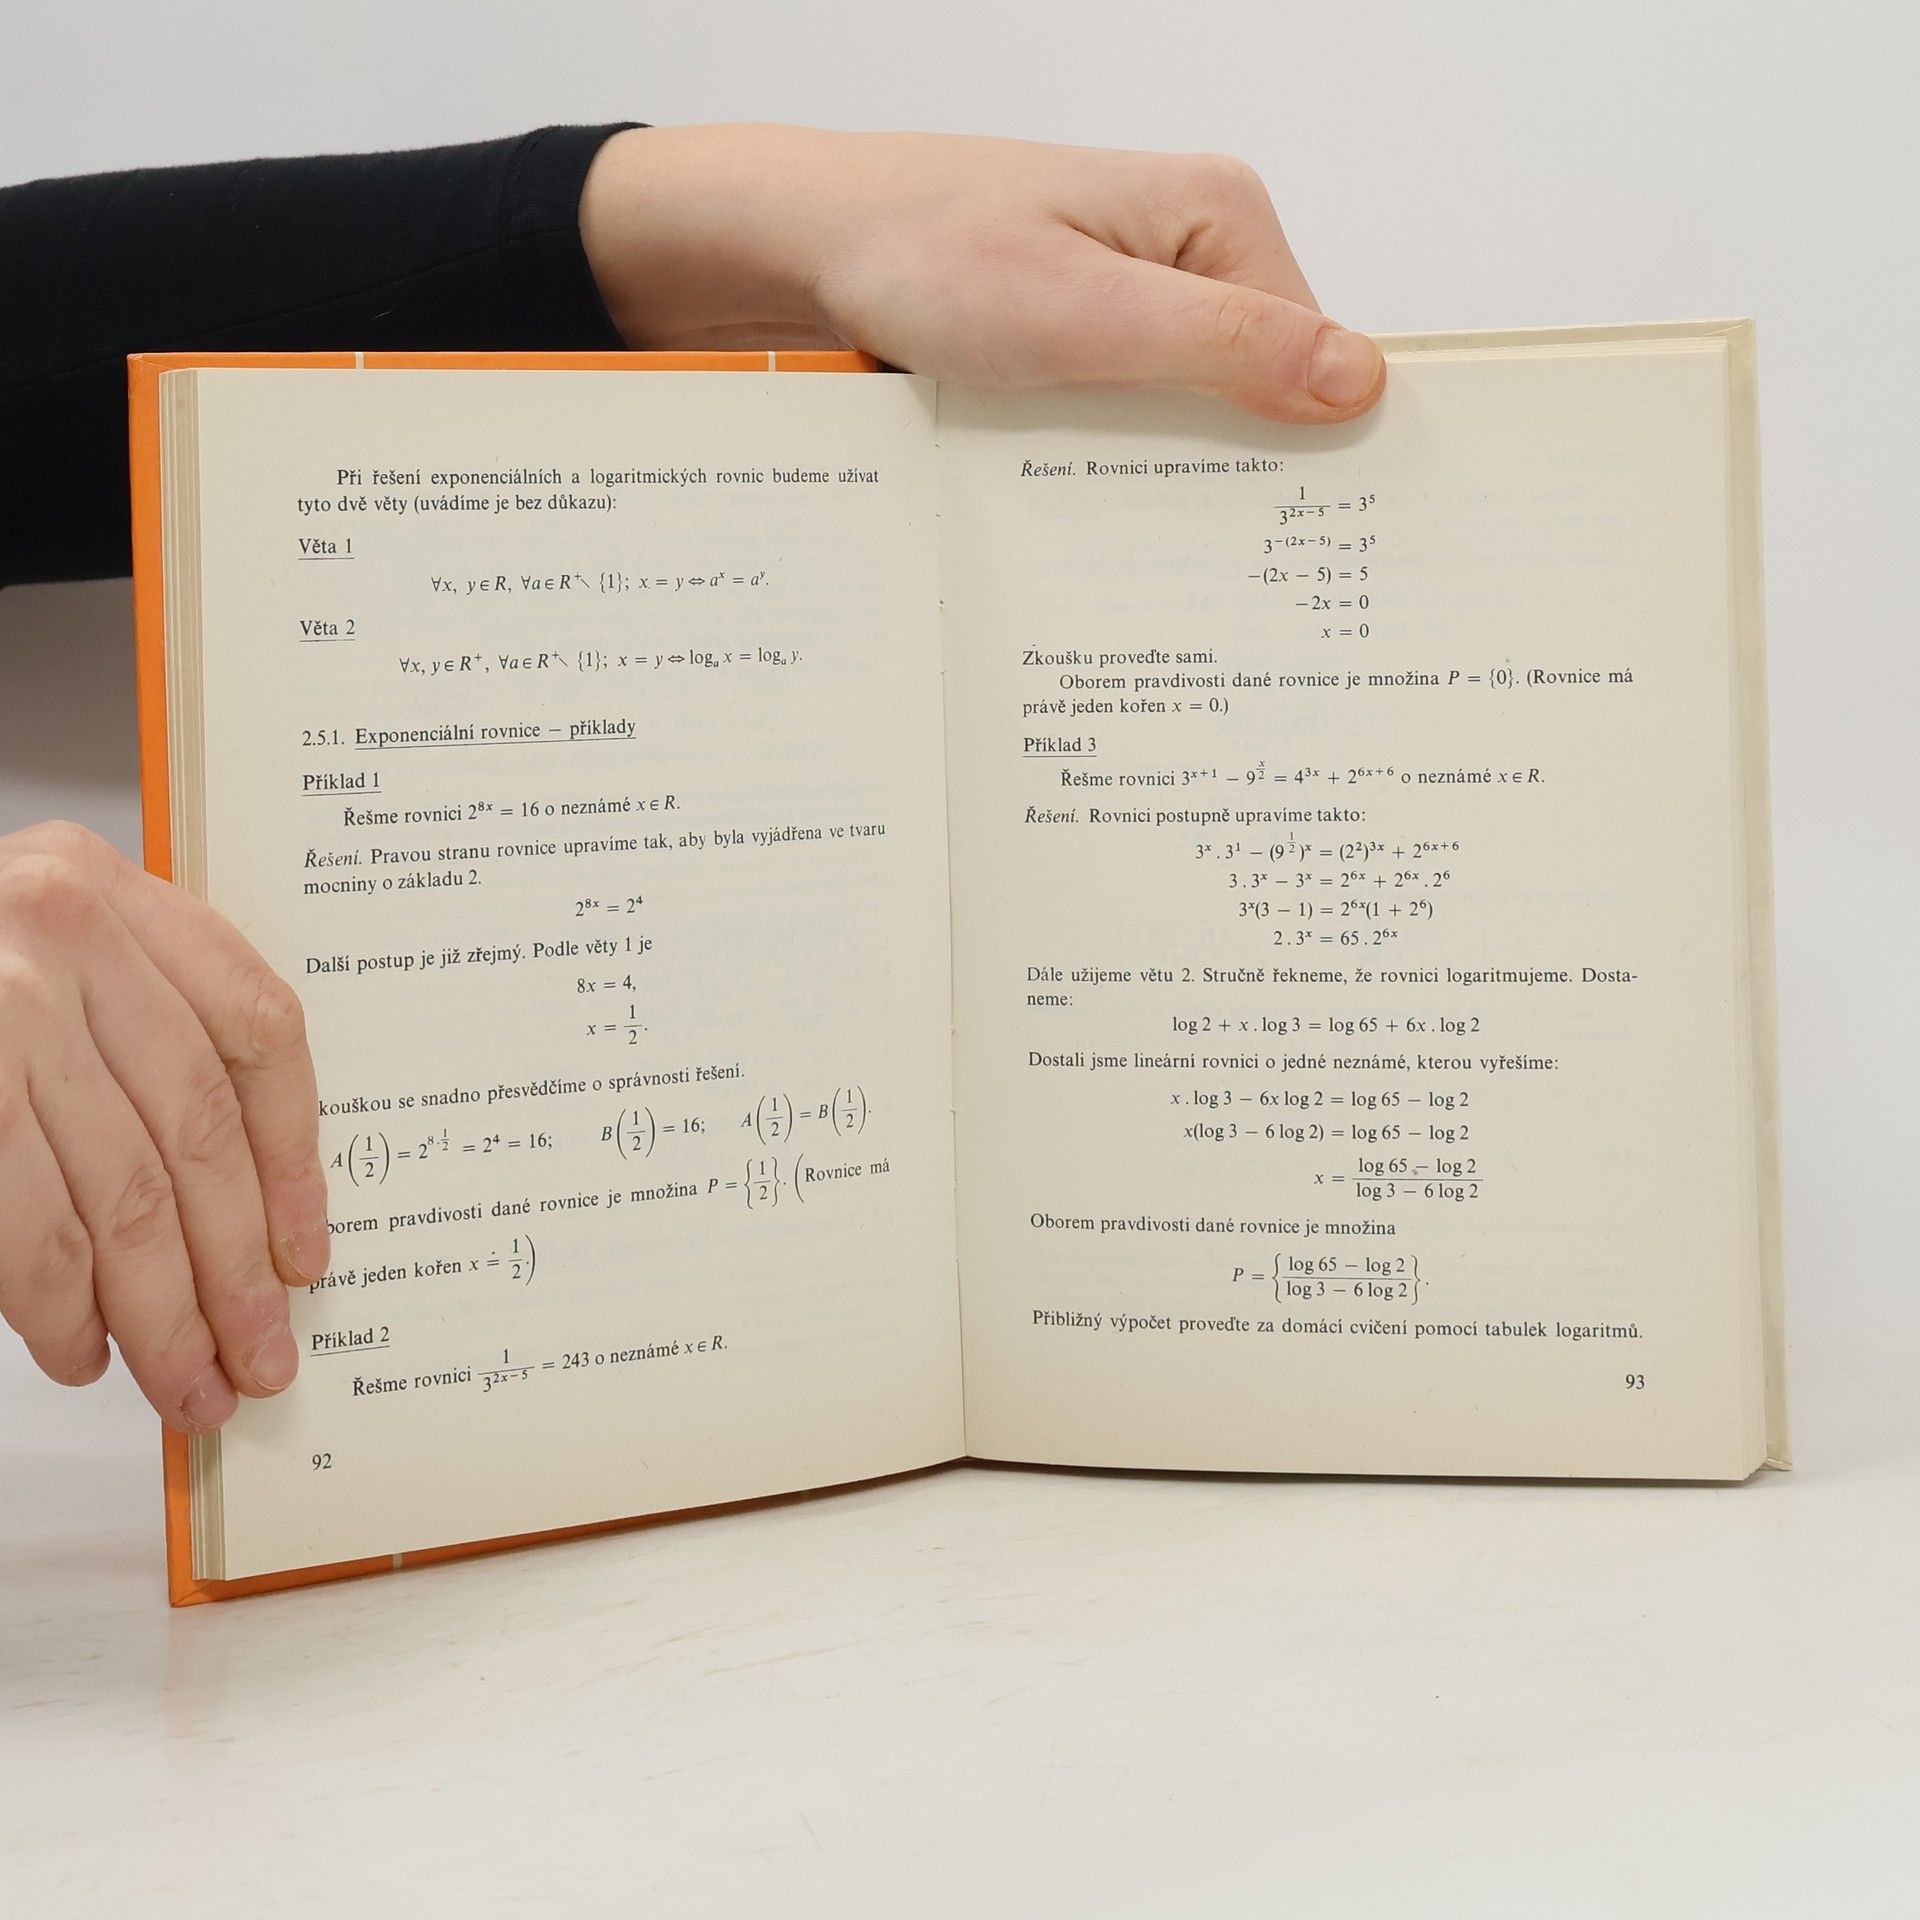 Při řešení exponenciálních a logaritmických rovnic budeme užívat
tyto dvě věty (uvádíme je bez důkazu):
Věta 1
∀x, y ∈ R, ∀a ∈ R⁺∖ {1}; x = y ⇔ aˣ = aʸ.
Věta 2
∀x, y ∈ R⁺, ∀a ∈ R⁺∖ {1}; x = y ⇔ logₐ x = logₐ y.
2.5.1. Exponenciální rovnice – příklady
Příklad 1
Řešme rovnici 2⁸ˣ = 16 o neznámé x ∈ R.
Řešení. Pravou stranu rovnice upravíme tak, aby byla vyjádřena ve tvaru
mocniny o základu 2.
2⁸ˣ = 2⁴
Další postup je již zřejmý. Podle věty 1 je
8x = 4,
x = 1/2.
kouškou se snadno přesvědčíme o správnosti řešení.
A(1/2) = 2^(8·1/2) = 2⁴ = 16; B(1/2) = 16; A(1/2) = B(1/2).
borem pravdivosti dané rovnice je množina P = {1/2}. (Rovnice má
právě jeden kořen x = 1/2.)
Příklad 2
Řešme rovnici 1/3^(2x−5) = 243 o neznámé x ∈ R.
92
Řešení. Rovnici upravíme takto:
1/3^(2x−5) = 3⁵
3^(−(2x−5)) = 3⁵
−(2x − 5) = 5
−2x = 0
x = 0
Zkoušku proveďte sami.
Oborem pravdivosti dané rovnice je množina P = {0}. (Rovnice má
právě jeden kořen x = 0.)
Příklad 3
Řešme rovnici 3^(x+1) − 9^(x/2) = 4^(3x) + 2^(6x+6) o neznámé x ∈ R.
Řešení. Rovnici postupně upravíme takto:
3ˣ . 3¹ − (9^(1/2))ˣ = (2²)³ˣ + 2^(6x+6)
3 . 3ˣ − 3ˣ = 2⁶ˣ + 2⁶ˣ . 2⁶
3ˣ(3 − 1) = 2⁶ˣ(1 + 2⁶)
2 . 3ˣ = 65 . 2⁶ˣ
Dále užijeme větu 2. Stručně řekneme, že rovnici logaritmujeme. Dosta-
neme:
log 2 + x . log 3 = log 65 + 6x . log 2
Dostali jsme lineární rovnici o jedné neznámé, kterou vyřešíme:
x . log 3 − 6x log 2 = log 65 − log 2
x(log 3 − 6 log 2) = log 65 − log 2
x = (log 65 − log 2)/(log 3 − 6 log 2)
Oborem pravdivosti dané rovnice je množina
P = {(log 65 − log 2)/(log 3 − 6 log 2)}.
Přibližný výpočet proveďte za domácí cvičení pomocí tabulek logaritmů.
93